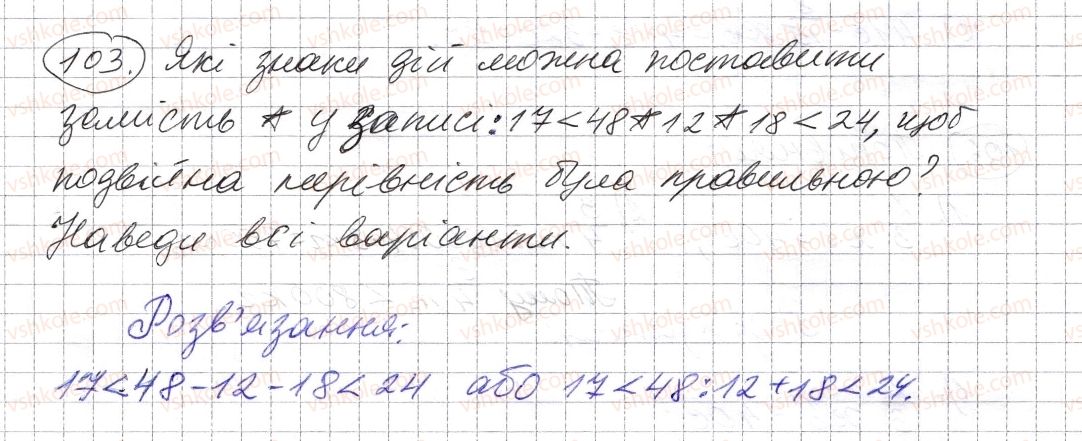 103. Які знаки дій можна поставити
замість * у записі: 17<48*12*18<24, щоб
подвійна нерівність була правильною?
Наведи всі варіанти.
Розв'язання:
17<48-12-18<24 або 17<48:12+18<24.